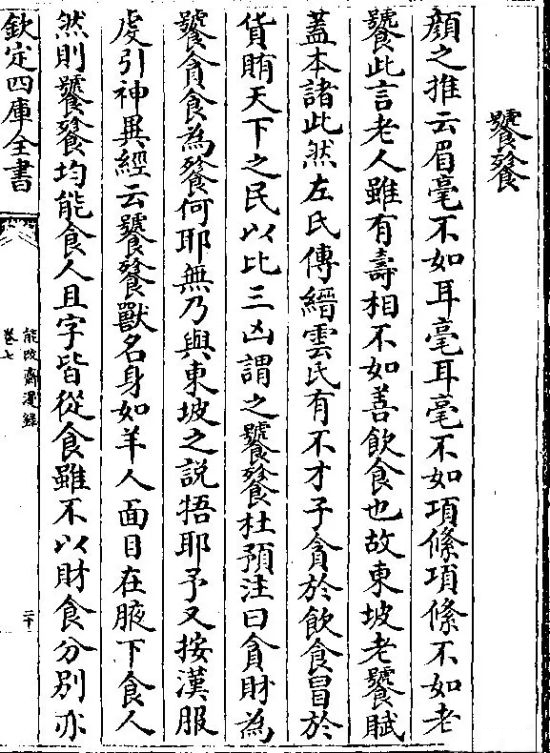 饕餮
顔之推云眉毫不如耳毫耳毫不如項絛項絛不如老
饕此言老人雖有壽相不如善飲食也故東坡老饕賦
蓋本諸此然左氏傳縉雲氏有不才子貪於飲食冒於
貨賄天下之民以比三凶謂之饕餮杜預注曰貪財為
饕貪食為餮何耶無乃與東坡之説牾耶予又按漢服
虔引神異經云饕餮獸名身如羊人面目在腋下食人
然則饕餮均能食人且字皆從食雖不以財食分別亦
欽定四庫全書
能改齋漫録
卷七
二十